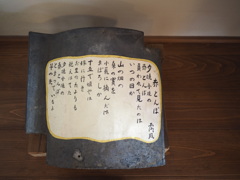 赤とんぼ
夕焼小焼の
赤とんぼ
負われて見たのは
いつの日か
山の畑の
桑の実を
小籠に摘んだは
まぼろしか
十五で姐やは
嫁に行き
お里のたよりも
絶えはてた
夕焼小焼の
赤とんぼ
とまっているよ
竿の先